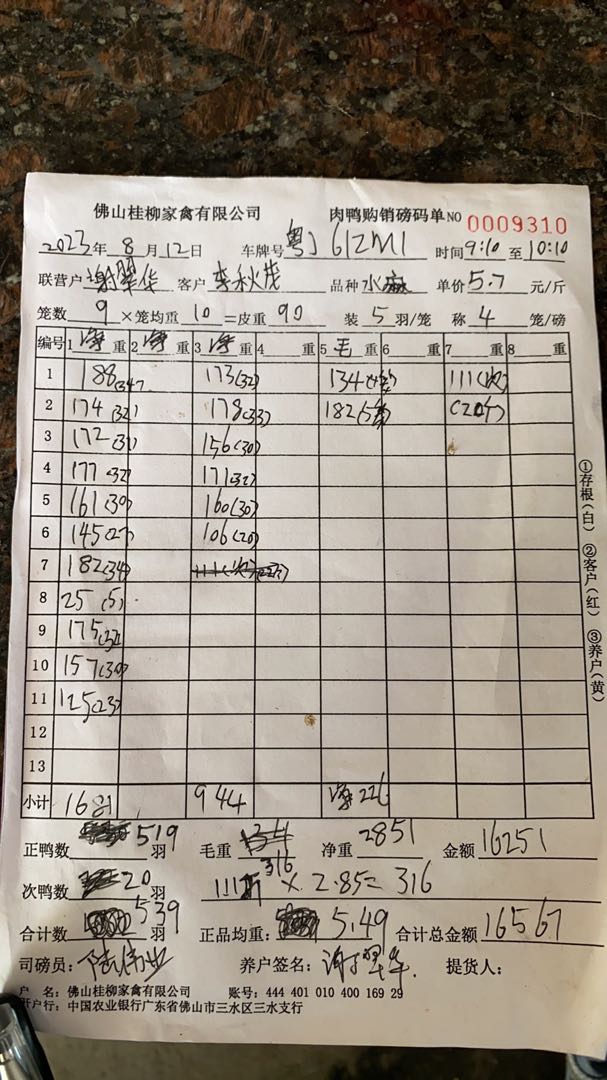 佛山桂柳家禽有限公司 肉鸭购销磅码单 NO 0009310
2023年 8 月 12 日 车牌号 粤J 612M1 时间 9:10 至 10:10
联营户 谢翠华 客户 李秋茂 品种 水麻 单价 5.7 元/斤
笼数 9 ×笼均重 10 =皮重 90 装 5 羽/笼 称 4 笼/磅
编号 1 净 重 2 净 重 3 净 重 4 重 5 毛 重 6 重 7 重 8 重
1 188(34) 173(32) 134 111(次)
2 174(32) 178(33) 182 (20个)
3 172(31) 156(30)
4 177(32) 171(32)
5 161(30) 160(30)
6 145(27) 106(20)
7 182(34)
8 25(5)
9 175(32)
10 157(30)
11 125(23)
12
13
小计 1681 944 净226
正鸭数 519 羽 毛重 316 净重 2851 金额 16251
次鸭数 20 羽 111斤 × 2.85= 316
合计数 539 羽 正品均重: 5.49 合计总金额 16567
司磅员: 陆伟业 养户签名: 谢翠华 提货人:
户 名: 佛山桂柳家禽有限公司 账号: 444 401 010 400 169 29
开户行: 中国农业银行广东省佛山市三水区三水支行
①存根(白) ②客户(红) ③养户(黄)